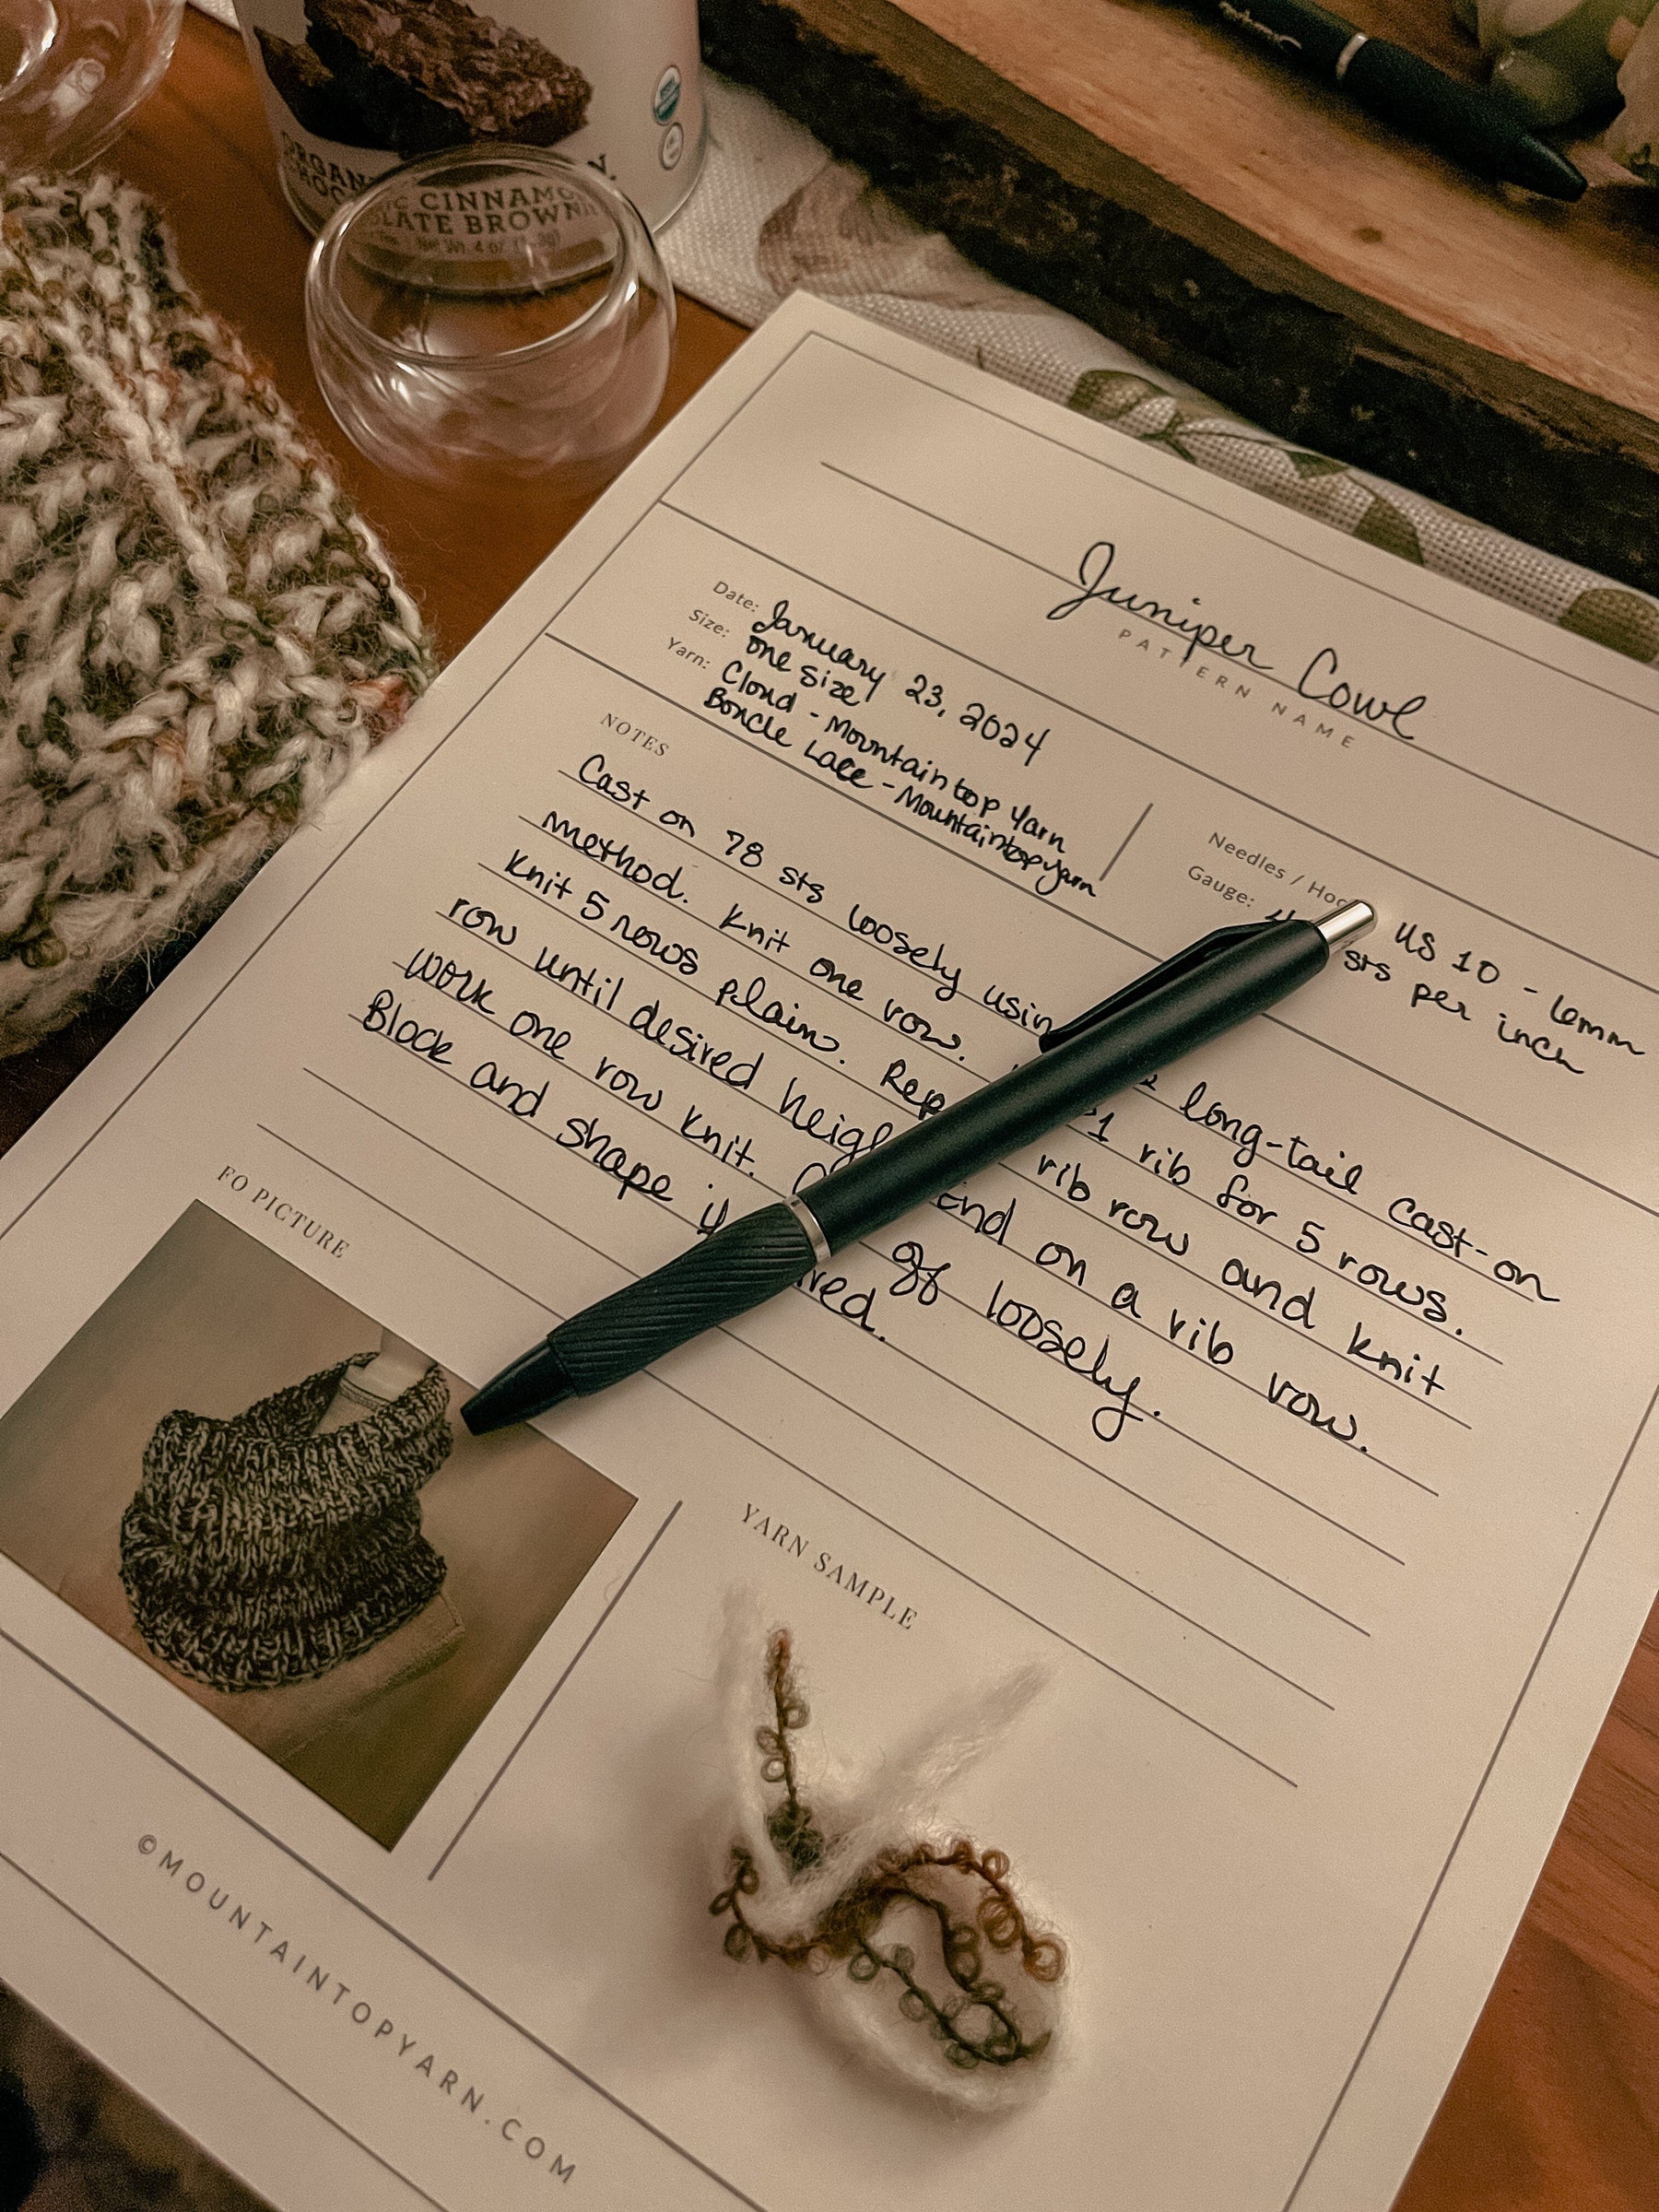 ORGANIC CINNAMO
LATE BROWNI
Net Wt. 4 oz.
Juniper Cowl
PATTERN NAME
Date: January 23, 2024
Size: one size
Yarn: Cloud - Mountaintop Yarn
Boncle Lace - Mountaintopyarn
Needles / Hoo US 10 - 6mm
Gauge: 4 sts per inch
NOTES
Cast on 78 sts loosely usin long-tail cast-on
method. Knit one row. 1 rib for 5 rows.
Knit 5 rows plain. Rep rib row and knit
row until desired heigh End on a rib row.
Work one row knit. off loosely.
Block and shape
FO PICTURE
YARN SAMPLE
©MOUNTAINTOPYARN.COM